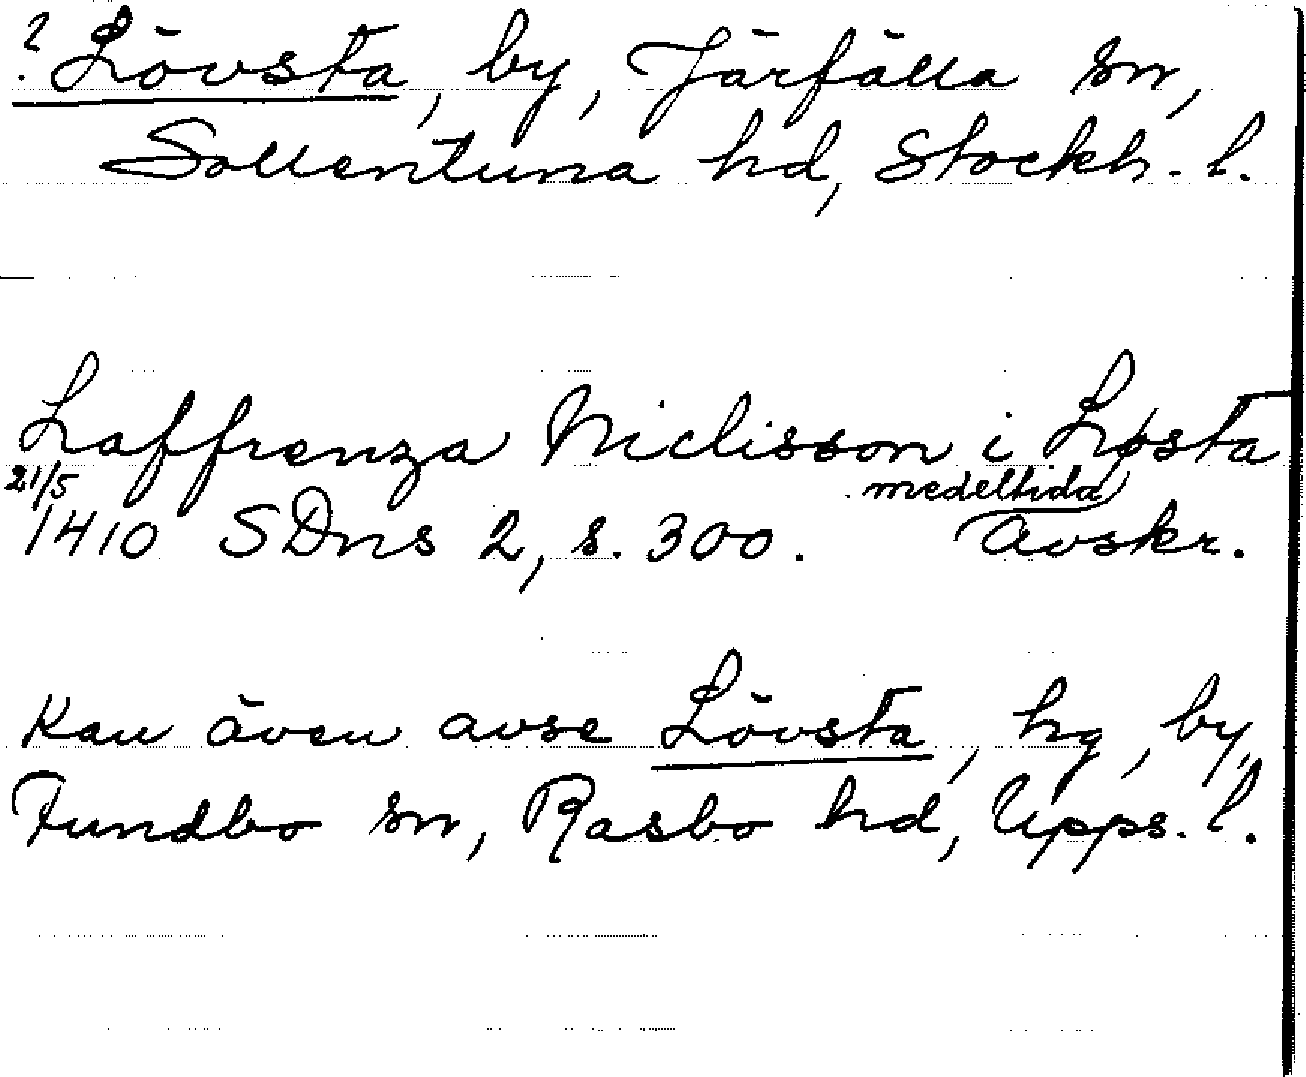 ? Lövsta, by, Järfälla sn,
Sollentuna hd, Stockh. l.
Laffrenza Niclisson i Løsta
21/5 medeltida
1410 SDns 2, s. 300. avskr.
Kan även avse Lövsta, hg, by,
Funbo sn, Rasbo hd, Upps. l.